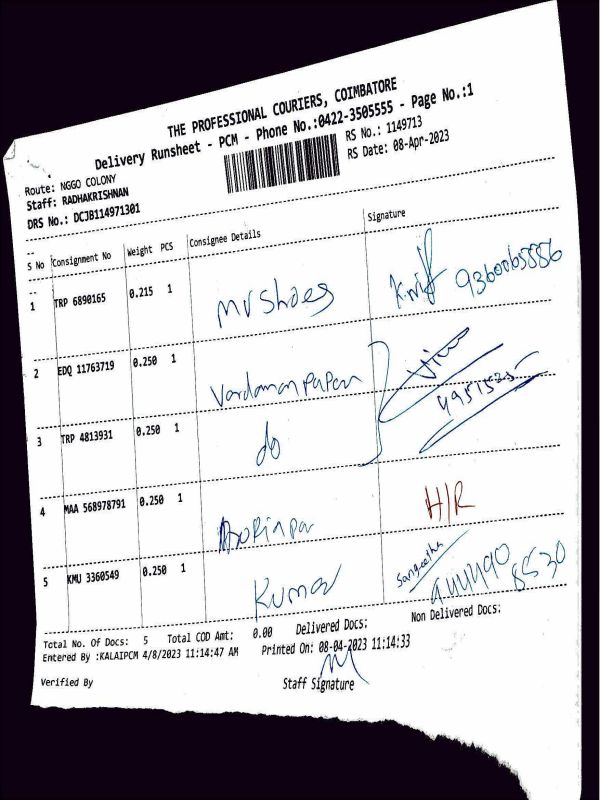 THE PROFESSIONAL COURIERS, COIMBATORE
Delivery Runsheet - PCM - Phone No.:0422-3505555 - Page No.:1
Route: NGGO COLONY
Staff: RADHAKRISHNAN
DRS No.: DCJB114971301
RS No.: 1149713
RS Date: 08-Apr-2023
S No Consignment No Weight PCS Consignee Details Signature
1 TRP 6890165 0.215 1 Mr Shoes 9360065886
2 EDQ 11763719 0.250 1 Vardaman Papar
3 TRP 4813931 0.250 1 do
4 MAA 568978791 0.250 1 H/R
5 KMU 3360549 0.250 1 Kumar Sangeetha
8530
Total No. Of Docs: 5 Total COD Amt: 0.00 Delivered Docs: Non Delivered Docs:
Entered By :KALAIPCM 4/8/2023 11:14:47 AM Printed On: 08-04-2023 11:14:33
Verified By Staff Signature